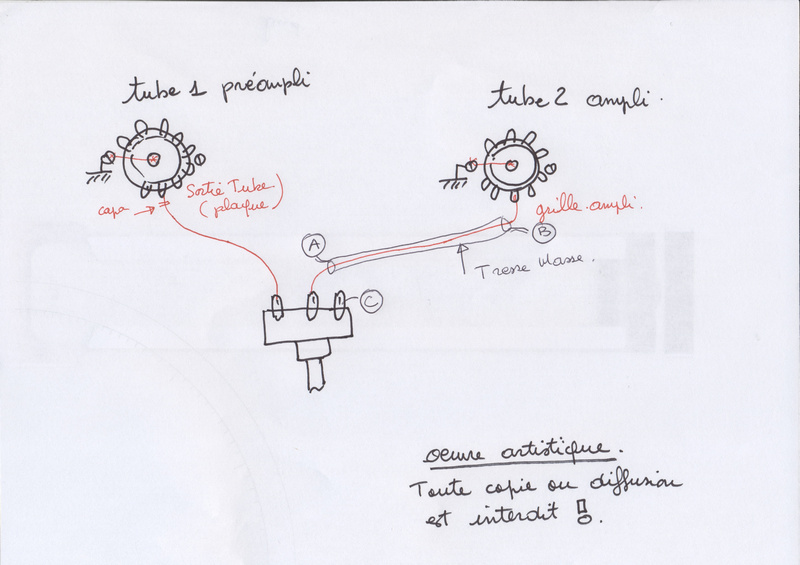 tube 1 préampli
tube 2 ampli.
capa
Sortie Tube
(plaque)
grille ampli.
A
B
Tresse Masse.
C
oeuvre artistique.
Toute copie ou diffusion
est interdit !